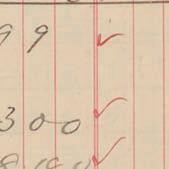 99 ✓
300 ✓